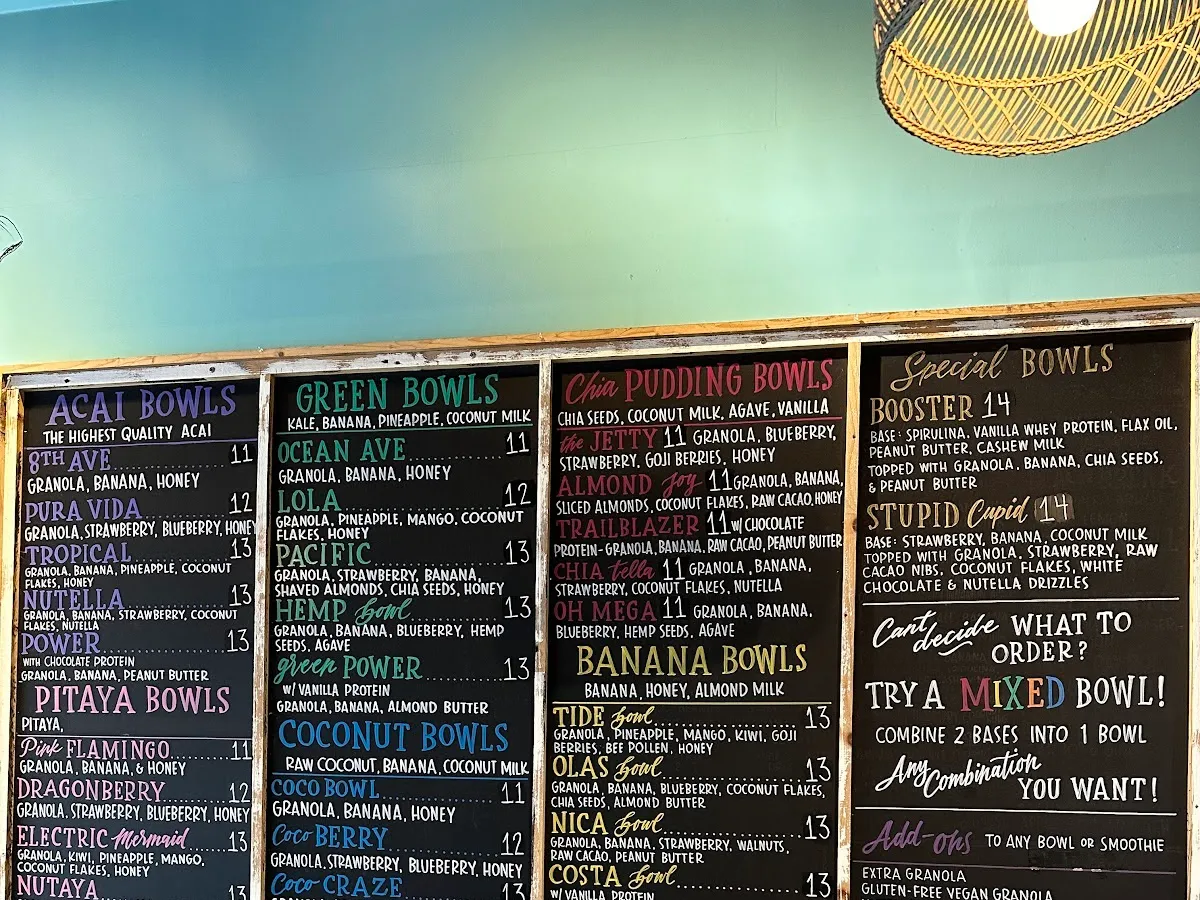 ACAI BOWLS
THE HIGHEST QUALITY ACAI
8TH AVE 11
GRANOLA, BANANA, HONEY
PURA VIDA 12
GRANOLA, STRAWBERRY, BLUEBERRY, HONEY
TROPICAL 13
GRANOLA, BANANA, PINEAPPLE, COCONUT
FLAKES, HONEY
NUTELLA 13
GRANOLA, BANANA, STRAWBERRY, COCONUT
FLAKES, NUTELLA
POWER 13
WITH CHOCOLATE PROTEIN
GRANOLA, BANANA, PEANUT BUTTER
PITAYA BOWLS
PITAYA,
Pink FLAMINGO 11
GRANOLA, BANANA, & HONEY
DRAGONBERRY 12
GRANOLA, STRAWBERRY, BLUEBERRY, HONEY
ELECTRIC Mermaid 13
GRANOLA, KIWI, PINEAPPLE, MANGO,
COCONUT FLAKES, HONEY
NUTAYA 13
GREEN BOWLS
KALE, BANANA, PINEAPPLE, COCONUT MILK
OCEAN AVE 11
GRANOLA, BANANA, HONEY
LOLA 12
GRANOLA, PINEAPPLE, MANGO, COCONUT
FLAKES, HONEY
PACIFIC 13
GRANOLA, STRAWBERRY, BANANA,
SHAVED ALMONDS, CHIA SEEDS, HONEY
HEMP Bowl 13
GRANOLA, BANANA, BLUEBERRY, HEMP
SEEDS, AGAVE
green POWER 13
W/ VANILLA PROTEIN
GRANOLA, BANANA, ALMOND BUTTER
COCONUT BOWLS
RAW COCONUT, BANANA, COCONUT MILK
COCO BOWL 11
GRANOLA, BANANA, HONEY
Coco BERRY 12
GRANOLA, STRAWBERRY, BLUEBERRY, HONEY
Coco CRAZE 13
Chia PUDDING BOWLS
CHIA SEEDS, COCONUT MILK, AGAVE, VANILLA
the JETTY 11 GRANOLA, BLUEBERRY,
STRAWBERRY, GOJI BERRIES, HONEY
ALMOND Joy 11 GRANOLA, BANANA,
SLICED ALMONDS, COCONUT FLAKES, RAW CACAO, HONEY
TRAILBLAZER 11 W/ CHOCOLATE
PROTEIN-GRANOLA, BANANA, RAW CACAO, PEANUT BUTTER
CHIA tella 11 GRANOLA, BANANA,
STRAWBERRY, COCONUT FLAKES, NUTELLA
OH MEGA 11 GRANOLA, BANANA,
BLUEBERRY, HEMP SEEDS, AGAVE
BANANA BOWLS
BANANA, HONEY, ALMOND MILK
TIDE Bowl 13
GRANOLA, PINEAPPLE, MANGO, KIWI, GOJI
BERRIES, BEE POLLEN, HONEY
OLAS Bowl 13
GRANOLA, BANANA, BLUEBERRY, COCONUT FLAKES,
CHIA SEEDS, ALMOND BUTTER
NICA Bowl 13
GRANOLA, BANANA, STRAWBERRY, WALNUTS,
RAW CACAO, PEANUT BUTTER
COSTA Bowl 13
W/ VANILLA PROTEIN
Special BOWLS
BOOSTER 14
BASE: SPIRULINA, VANILLA WHEY PROTEIN, FLAX OIL,
PEANUT BUTTER, CASHEW MILK
TOPPED WITH GRANOLA, BANANA, CHIA SEEDS,
& PEANUT BUTTER
STUPID Cupid 14
BASE: STRAWBERRY, BANANA, COCONUT MILK
TOPPED WITH GRANOLA, STRAWBERRY, RAW
CACAO NIBS, COCONUT FLAKES, WHITE
CHOCOLATE & NUTELLA DRIZZLES
Can't decide WHAT TO
ORDER?
TRY A MIXED BOWL!
COMBINE 2 BASES INTO 1 BOWL
Any Combination
YOU WANT!
Add-ons TO ANY BOWL OR SMOOTHIE
EXTRA GRANOLA
GLUTEN-FREE VEGAN GRANOLA